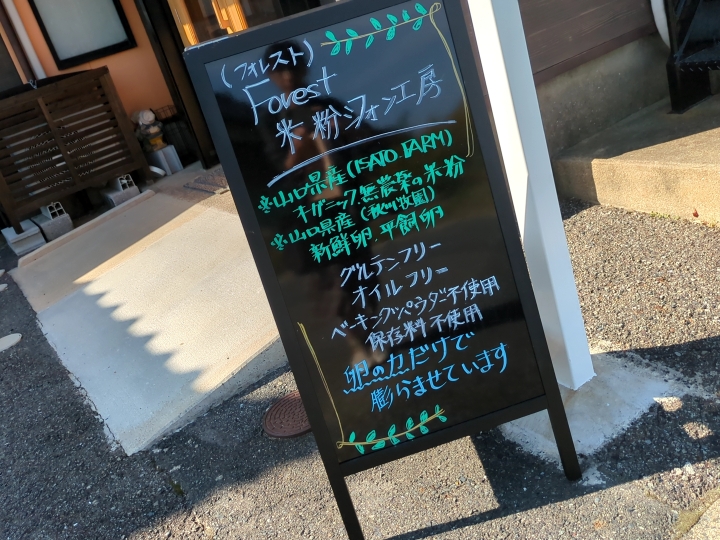 (フォレスト)
Forest
米粉シフォン工房
※山口県産(ISATO.FARM)
オーガニック.無農薬の米粉
※山口県産(秋川牧園)
新鮮卵.平飼卵
グルテンフリー
オイルフリー
ベーキングパウダー不使用
保存料不使用
卵の力だけで
膨らませています